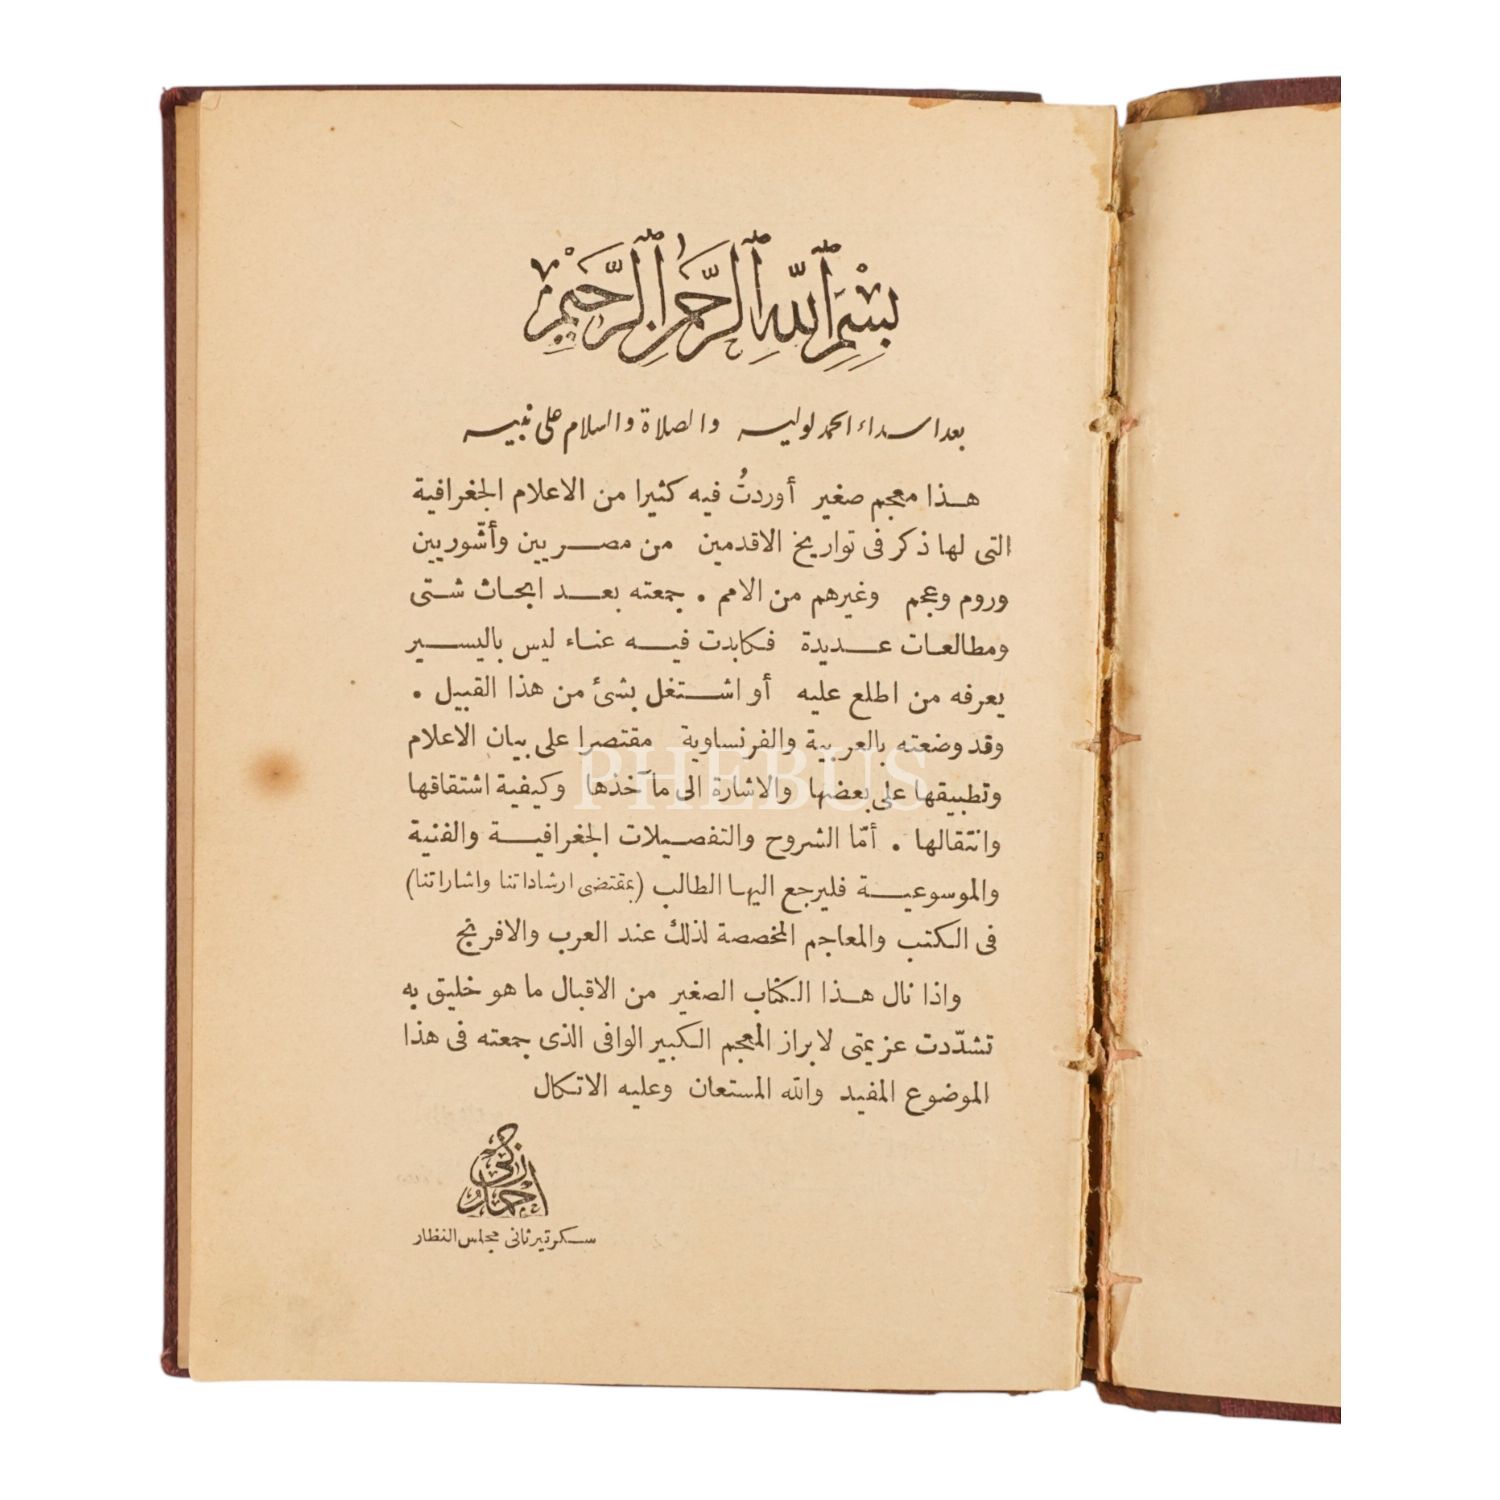 بسم الله الرحمن الرحيم
بعد اسداء الحمد لوليه والصلاة والسلام على نبيه
هذا معجم صغير أوردتُ فيه كثيرا من الاعلام الجغرافية
التى لها ذكر فى تواريخ الاقدمين من مصريين وأشّوريين
وروم وعجم وغيرهم من الامم . جمعته بعد ابحاث شتى
ومطالعات عديدة فكابدت فيه عناء ليس باليسير
يعرفه من اطلع عليه أو اشتغل بشئ من هذا القبيل .
وقد وضعته بالعربية والفرنساوية مقتصرا على بيان الاعلام
وتطبيقها على بعضها والاشارة الى مآخذها وكيفية اشتقاقها
وانتقالها . أمّا الشروح والتفصيلات الجغرافية والفنية
والموسوعية فليرجع اليها الطالب (بمقتضى ارشاداتنا واشاراتنا)
فى الكتب والمعاجم المخصصة لذلك عند العرب والافرنج
واذا نال هذا الكتاب الصغير من الاقبال ما هو خليق به
تشدّدت عزيمتى لابراز المعجم الكبير الوافى الذى جمعته فى هذا
الموضوع المفيد والله المستعان وعليه الاتكال
احمد زكى
سكرتير ثانى مجلس النظار
PHEBUS